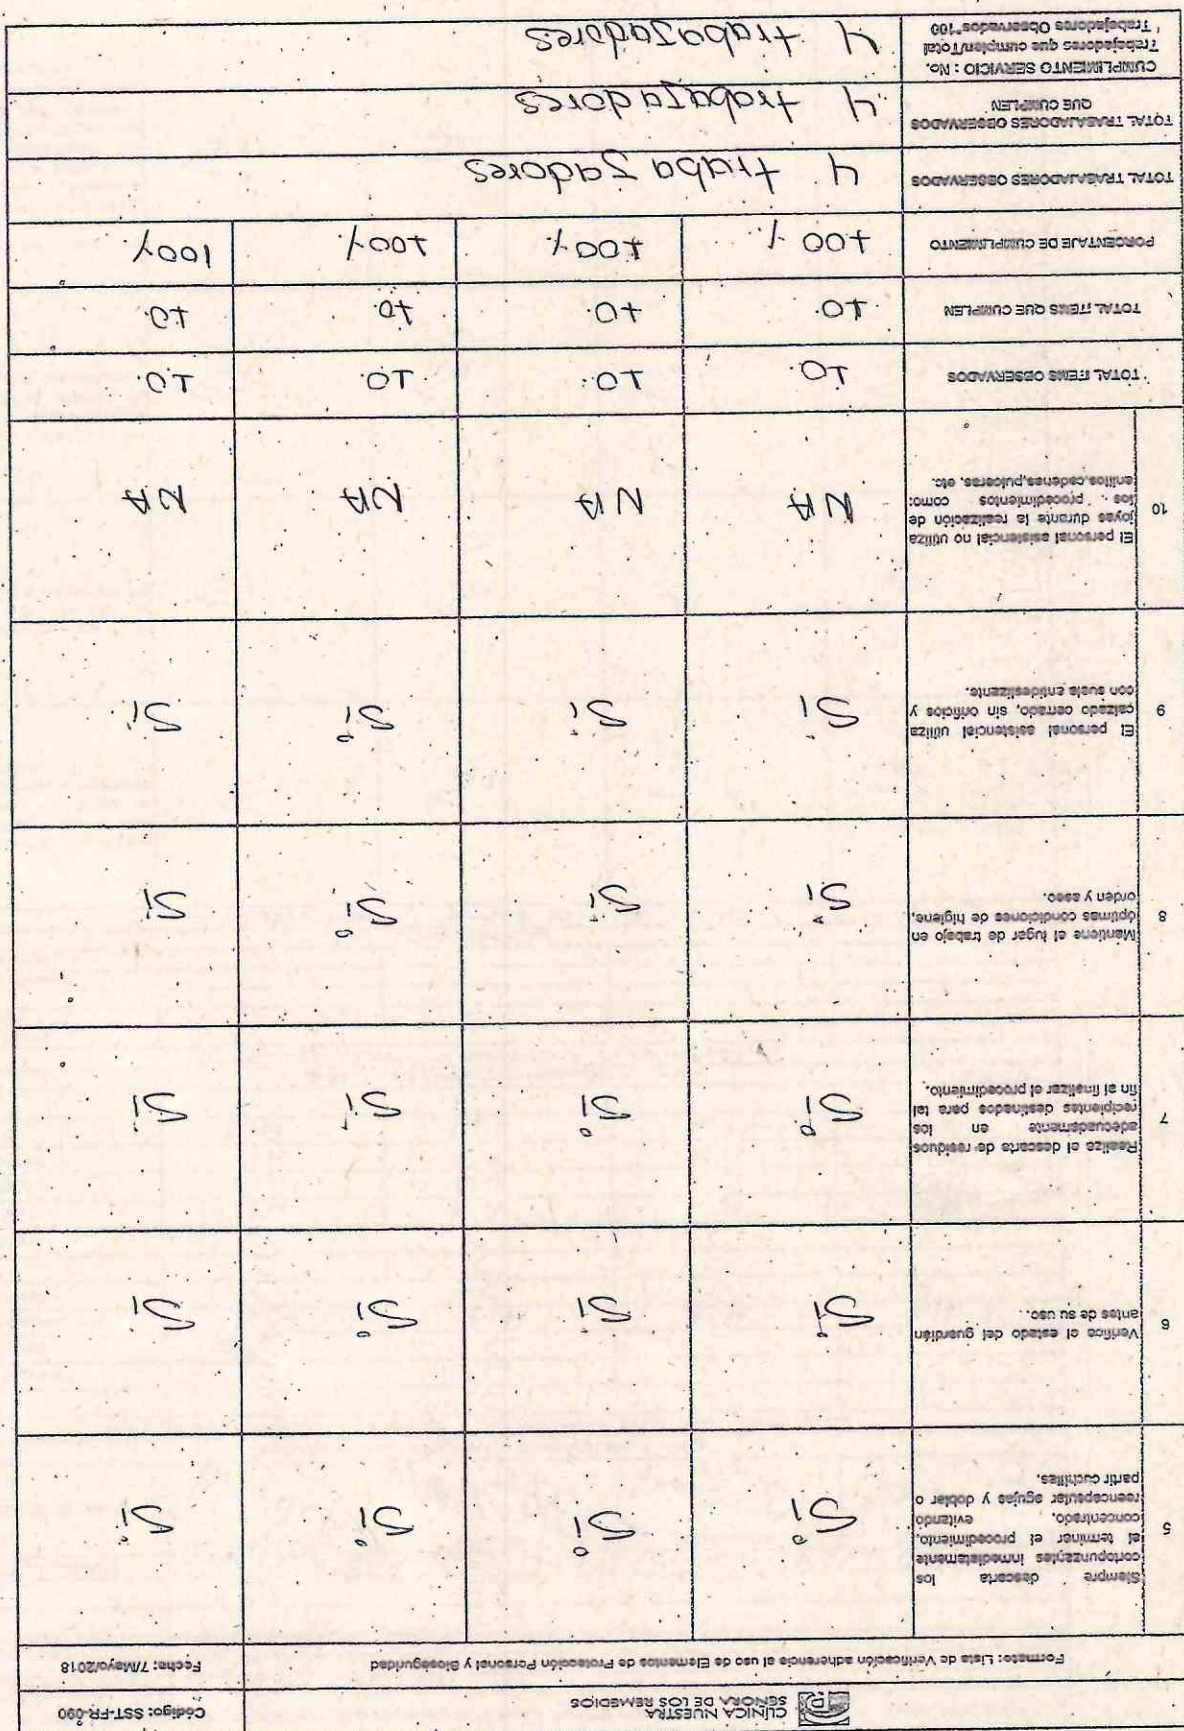 CLÍNICA NUESTRA
SEÑORA DE LOS REMEDIOS
Código: SST-FR-090
Formato: Lista de Verificación adherencia al uso de Elementos de Protección Personal y Bioseguridad
Fecha: 7/Mayo/2018
5
Siempre descarta los
cortopunzantes inmediatamente
al terminar el procedimiento,
concentrado, evitando
reencapsular agujas y doblar o
partir cuchillas.
Si Si Si Si
6
Verifica el estado del guardián
antes de su uso.
Si Si Si Si
7
Realiza el descarte de residuos
adecuadamente en los
recipientes destinados para tal
fin al finalizar el procedimiento.
Si Si Si Si
8
Mantiene el lugar de trabajo en
óptimas condiciones de higiene,
orden y aseo.
Si Si Si Si
9
El personal asistencial utiliza
calzado cerrado, sin orificios y
con suela antideslizante.
Si Si Si Si
10
El personal asistencial no utiliza
joyas durante la realización de
los procedimientos como:
anillos, cadenas, pulceras, etc.
NA NA NA NA
TOTAL ITEMS OBSERVADOS
10. 10. 10. 10.
TOTAL ITEMS QUE CUMPLEN
10. 10. 10. 10.
PORCENTAJE DE CUMPLIMIENTO
100% 100% 100% 100%
TOTAL TRABAJADORES OBSERVADOS
4 trabajadores
TOTAL TRABAJADORES OBSERVADOS
QUE CUMPLEN
4 trabajadores
CUMPLIMIENTO SERVICIO : No.
Trabajadores que cumplen/Total
Trabajadores Observados*100
4 trabajadores